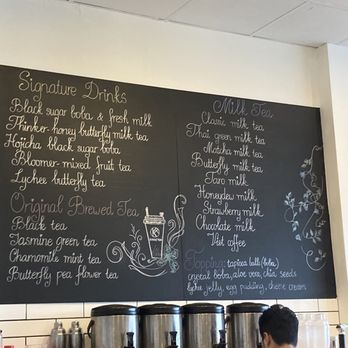 Signature Drinks
Black sugar boba & fresh milk
Thinker-honey butterfly milk tea
Hojicha black sugar boba
Bloomer-mixed fruit tea
Lychee butterfly tea
Original Brewed Tea
Black tea
Jasmine green tea
Chamomile mint tea
Butterfly pea flower tea
Milk Tea
Classic milk tea
Thai green milk tea
Matcha milk tea
Butterfly milk tea
Taro milk
Honeydew milk
Strawberry milk
Chocolate milk
Viet coffee
Topping: tapioca balls (boba)
crystal boba, aloe vera, chia seeds
lychee jelly, egg pudding, cheese cream